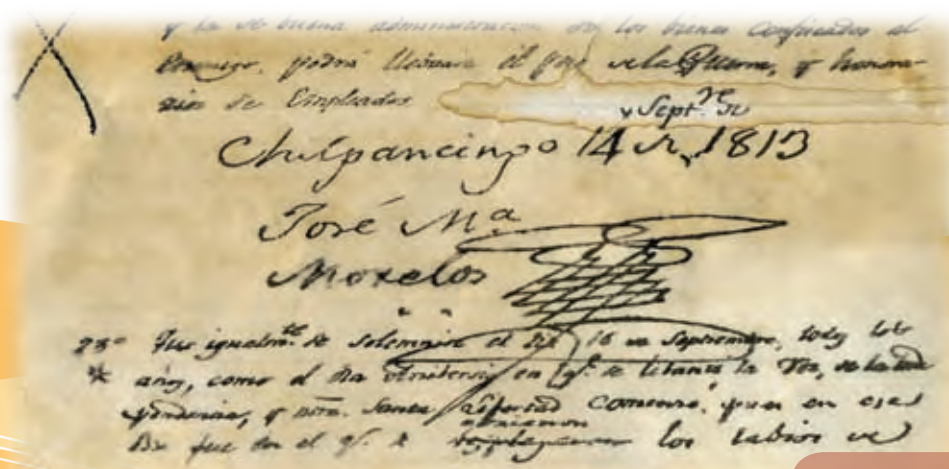 y la de buena administracion con los bienes confiscados al
Enemigo, podrá llevarse el peso de la Guerra, y honora-
rios de Empleados
Septre. de
Chilpancingo 14 de 1813
José Ma.
Morelos
23o Que igualmte. se solemnice el dia 16 de Septiembre, todos los
años, como el dia Aniversario en q. se levantó la Voz, de la Inde
pendencia, y ntra. Santa Libertad comenzó, pues en ese
Dia fue en el q. se los labios de